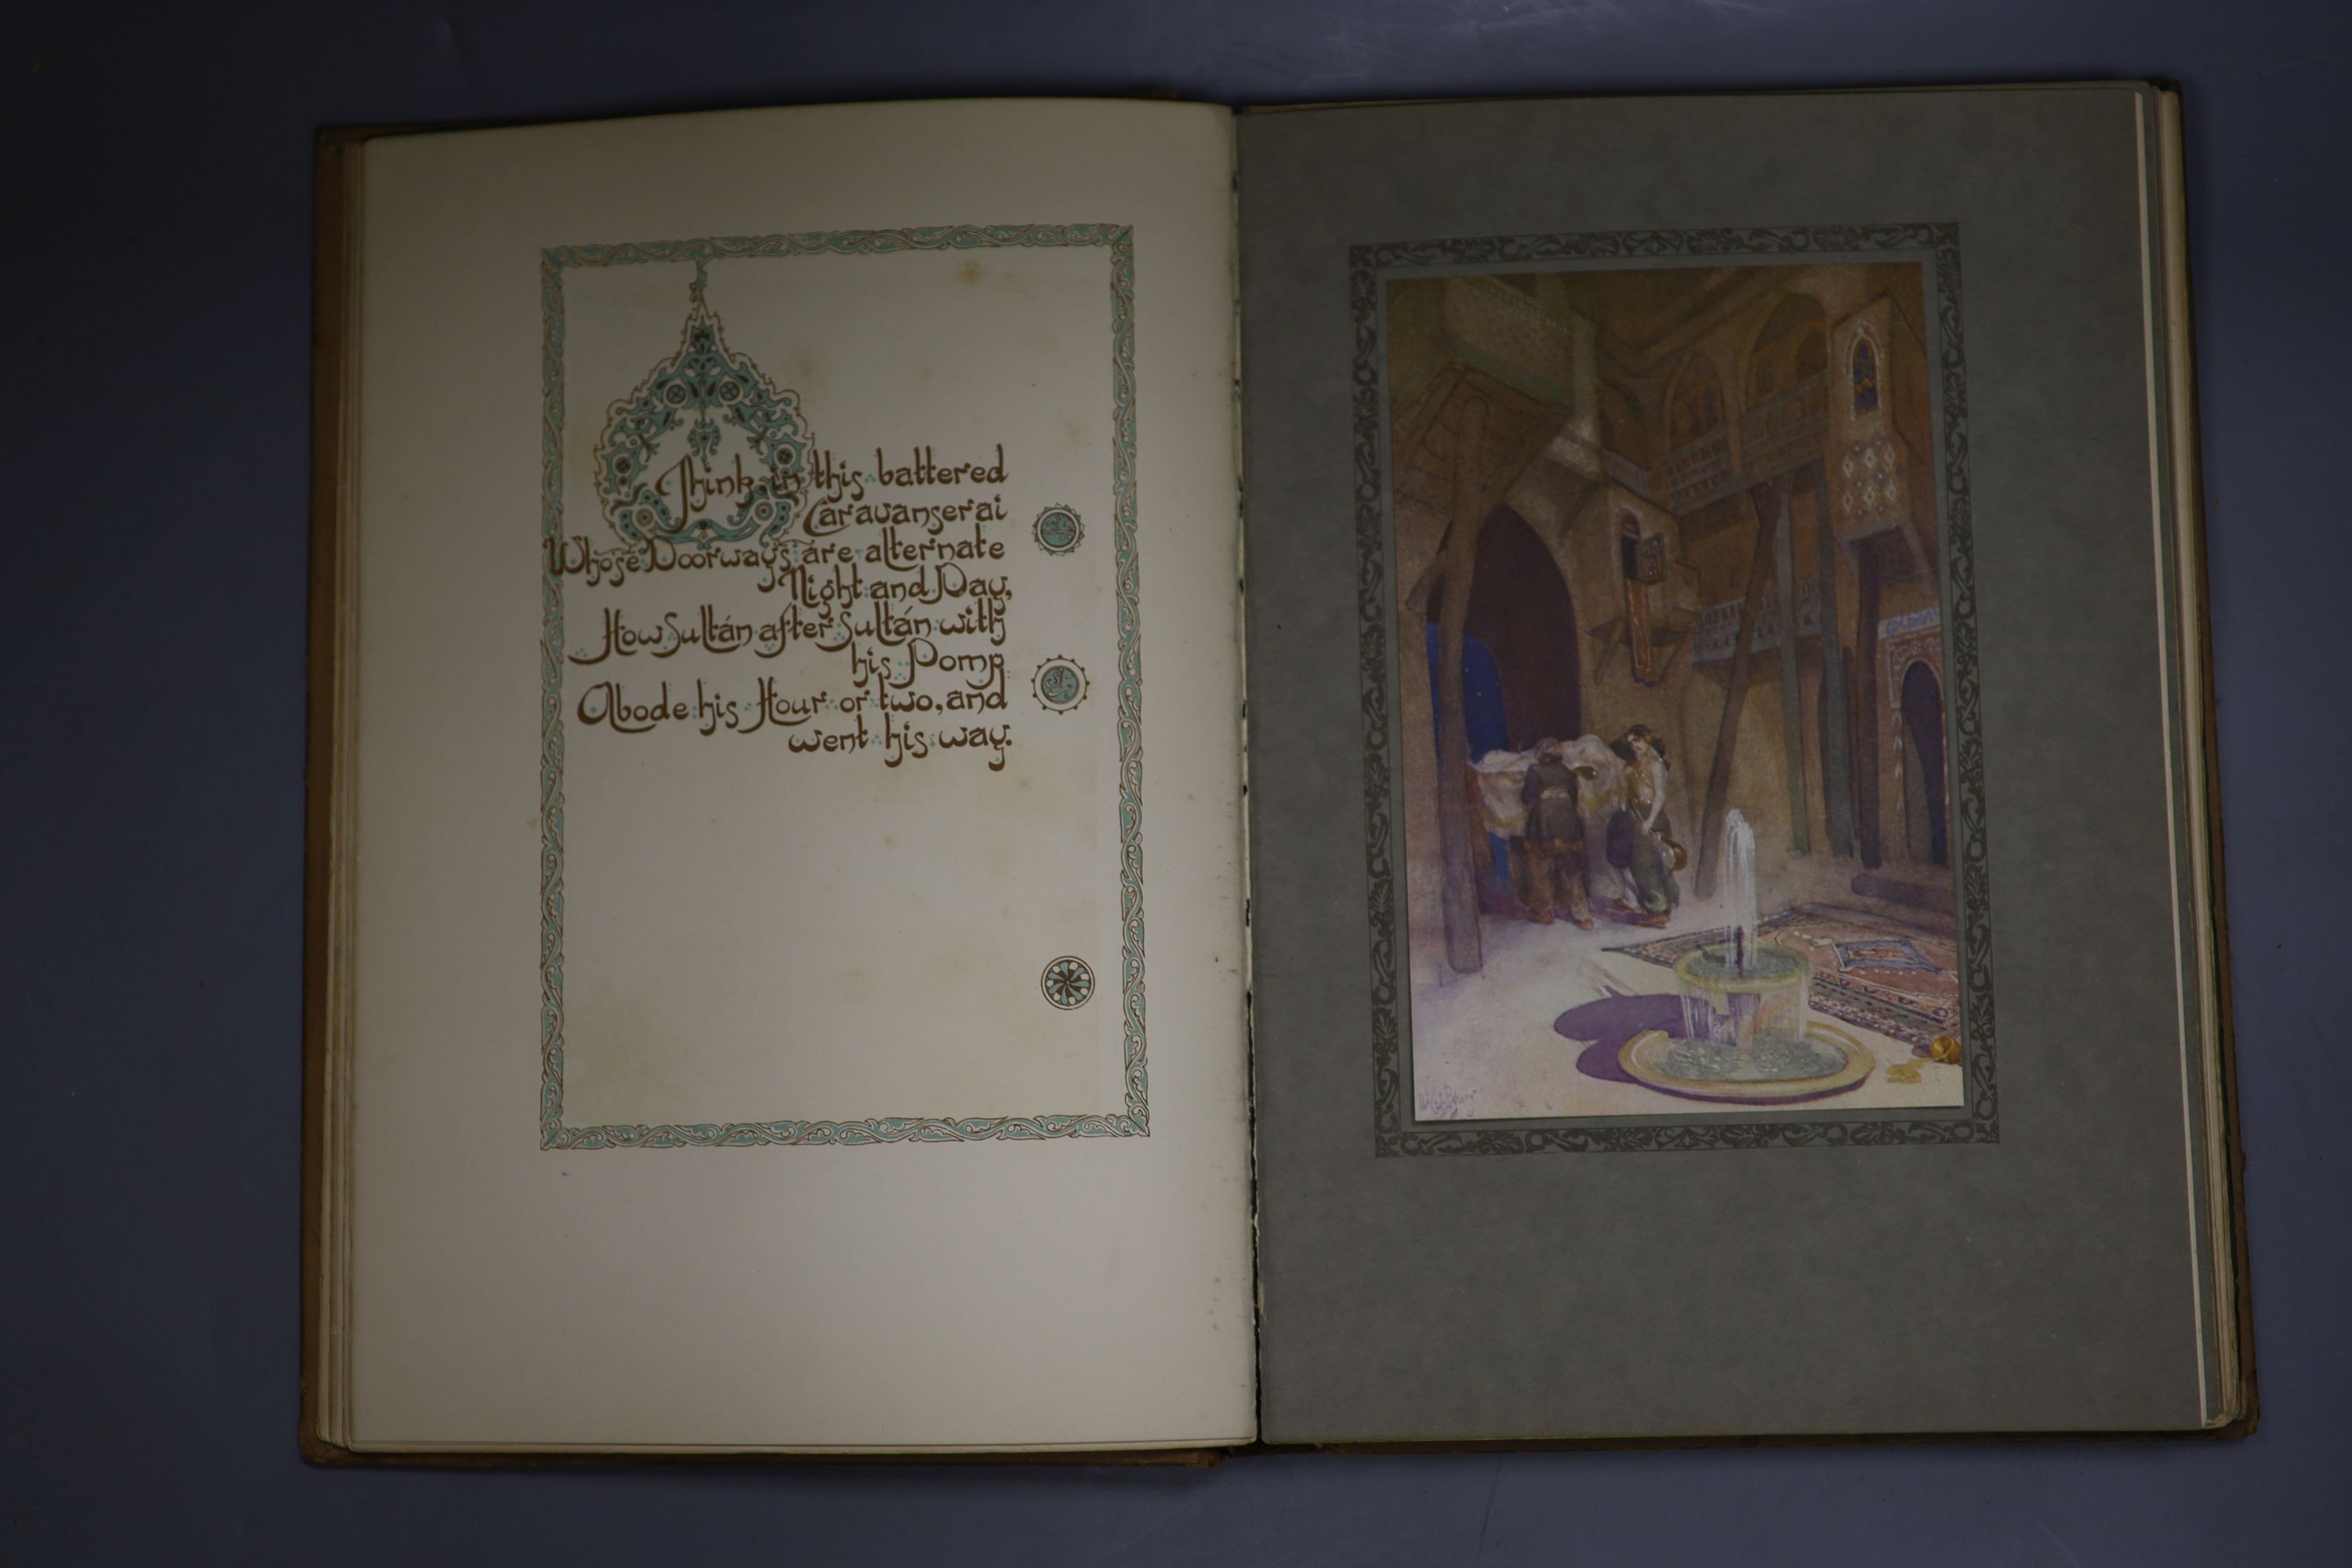 Think, in this battered
Caravanserai
Whose Doorways are alternate
Night and Day,
How Sultán after Sultán with
his Pomp
Abode his Hour or two, and
went his way.